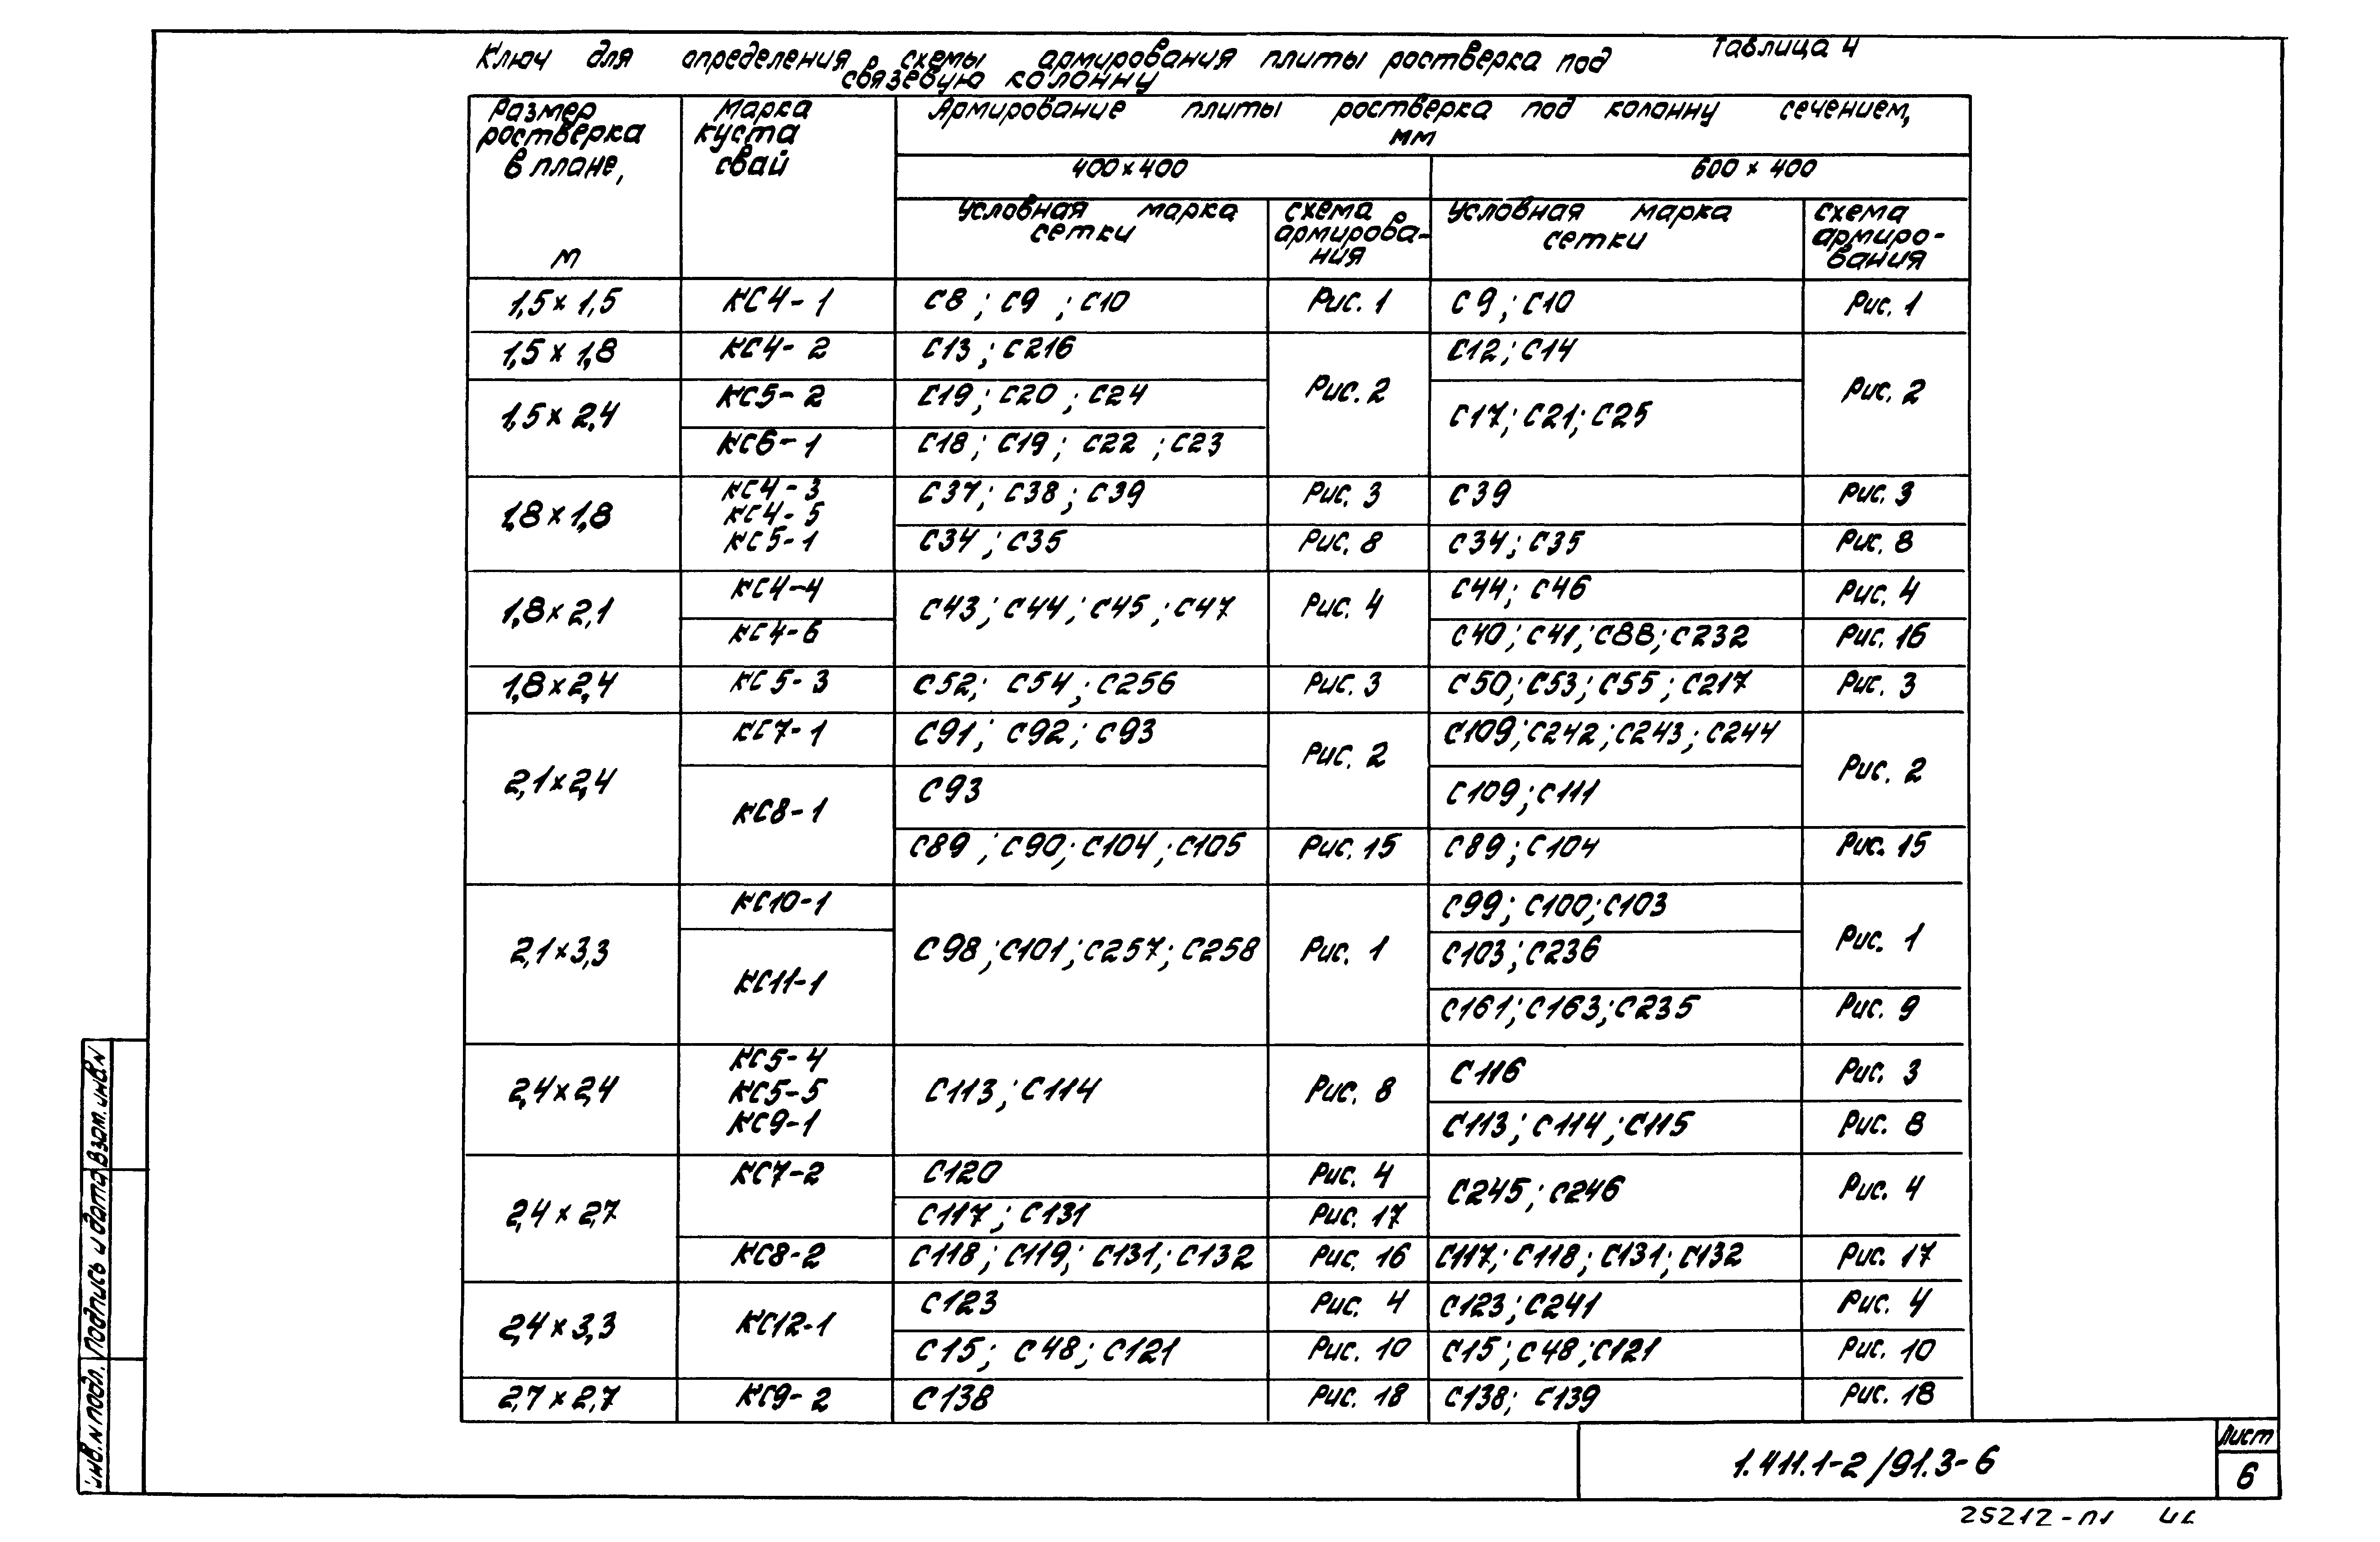 Таблица 4
Ключ для определения схемы армирования плиты ростверка под
связевую колонну
Размер ростверка в плане, м
Марка куста свай
Армирование плиты ростверка под колонну сечением, мм
400×400
600×400
Условная марка сетки
Схема армирова-ния
Условная марка сетки
Схема армиро-вания
1,5×1,5 КС4-1 С8; С9; С10 Рис. 1 С9; С10 Рис. 1
1,5×1,8 КС4-2 С13; С216 С12; С14
Рис. 2 Рис. 2
1,5×2,4 КС5-2 С19; С20; С24 С17; С21; С25
КС6-1 С18; С19; С22; С23
1,8×1,8
КС4-3 С37; С38; С39 Рис. 3 С39 Рис. 3
КС4-5
КС5-1 С34; С35 Рис. 8 С34; С35 Рис. 8
1,8×2,1 КС4-4 С43; С44; С45; С47 Рис. 4 С44; С46 Рис. 4
КС4-6 С40; С41; С88; С232 Рис. 16
1,8×2,4 КС5-3 С52; С54; С256 Рис. 3 С50; С53; С55; С217 Рис. 3
2,1×2,4 КС7-1 С91; С92; С93 Рис. 2 С109; С242; С243; С244 Рис. 2
КС8-1 С93 С109; С111
С89; С90; С104; С105 Рис. 15 С89; С104 Рис. 15
2,1×3,3 КС10-1 С98; С101; С257; С258 Рис. 1 С99; С100; С103 Рис. 1
КС11-1 С103; С236
С161; С163; С235 Рис. 9
2,4×2,4
КС5-4 С113; С114 Рис. 8 С116 Рис. 3
КС5-5
КС9-1 С113; С114; С115 Рис. 8
2,4×2,7 КС7-2 С120 Рис. 4 С245; С246 Рис. 4
С117; С131 Рис. 17
КС8-2 С118; С119; С131; С132 Рис. 16 С117; С118; С131; С132 Рис. 17
2,4×3,3 КС12-1 С123 Рис. 4 С123; С241 Рис. 4
С15; С48; С121 Рис. 10 С15; С48; С121 Рис. 10
2,7×2,7 КС9-2 С138 Рис. 18 С138; С139 Рис. 18
Инв. N подл. Подпись и дата Взам. инв. N
1.411.1-2/91.3-6
Лист
6
25212-